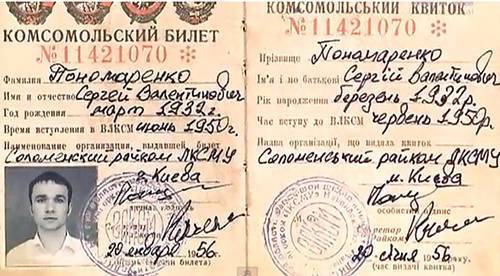 КОМСОМОЛЬСКИЙ БИЛЕТ
№11421070
Фамилия Пономаренко
Имя и отчество Сергей Валентинович
Год рождения март 1932г.
Время вступления в ВЛКСМ июнь 1950г.
Наименование организации, выдавшей билет
Соломенский райком ЛКСМУ
г. Киева
20 января 1956г.
КОМСОМОЛЬСЬКИЙ КВИТОК
№11421070
Прізвище Пономаренко
Ім'я і по батькові Сергій Валентинович
Рік народження березень 1932р.
Час вступу до ВЛКСМ червень 1950р.
Назва організації, що видала квиток
Соломенський райком ЛКСМУ
м. Києва
особистий підпис
20 січня 1956 року.